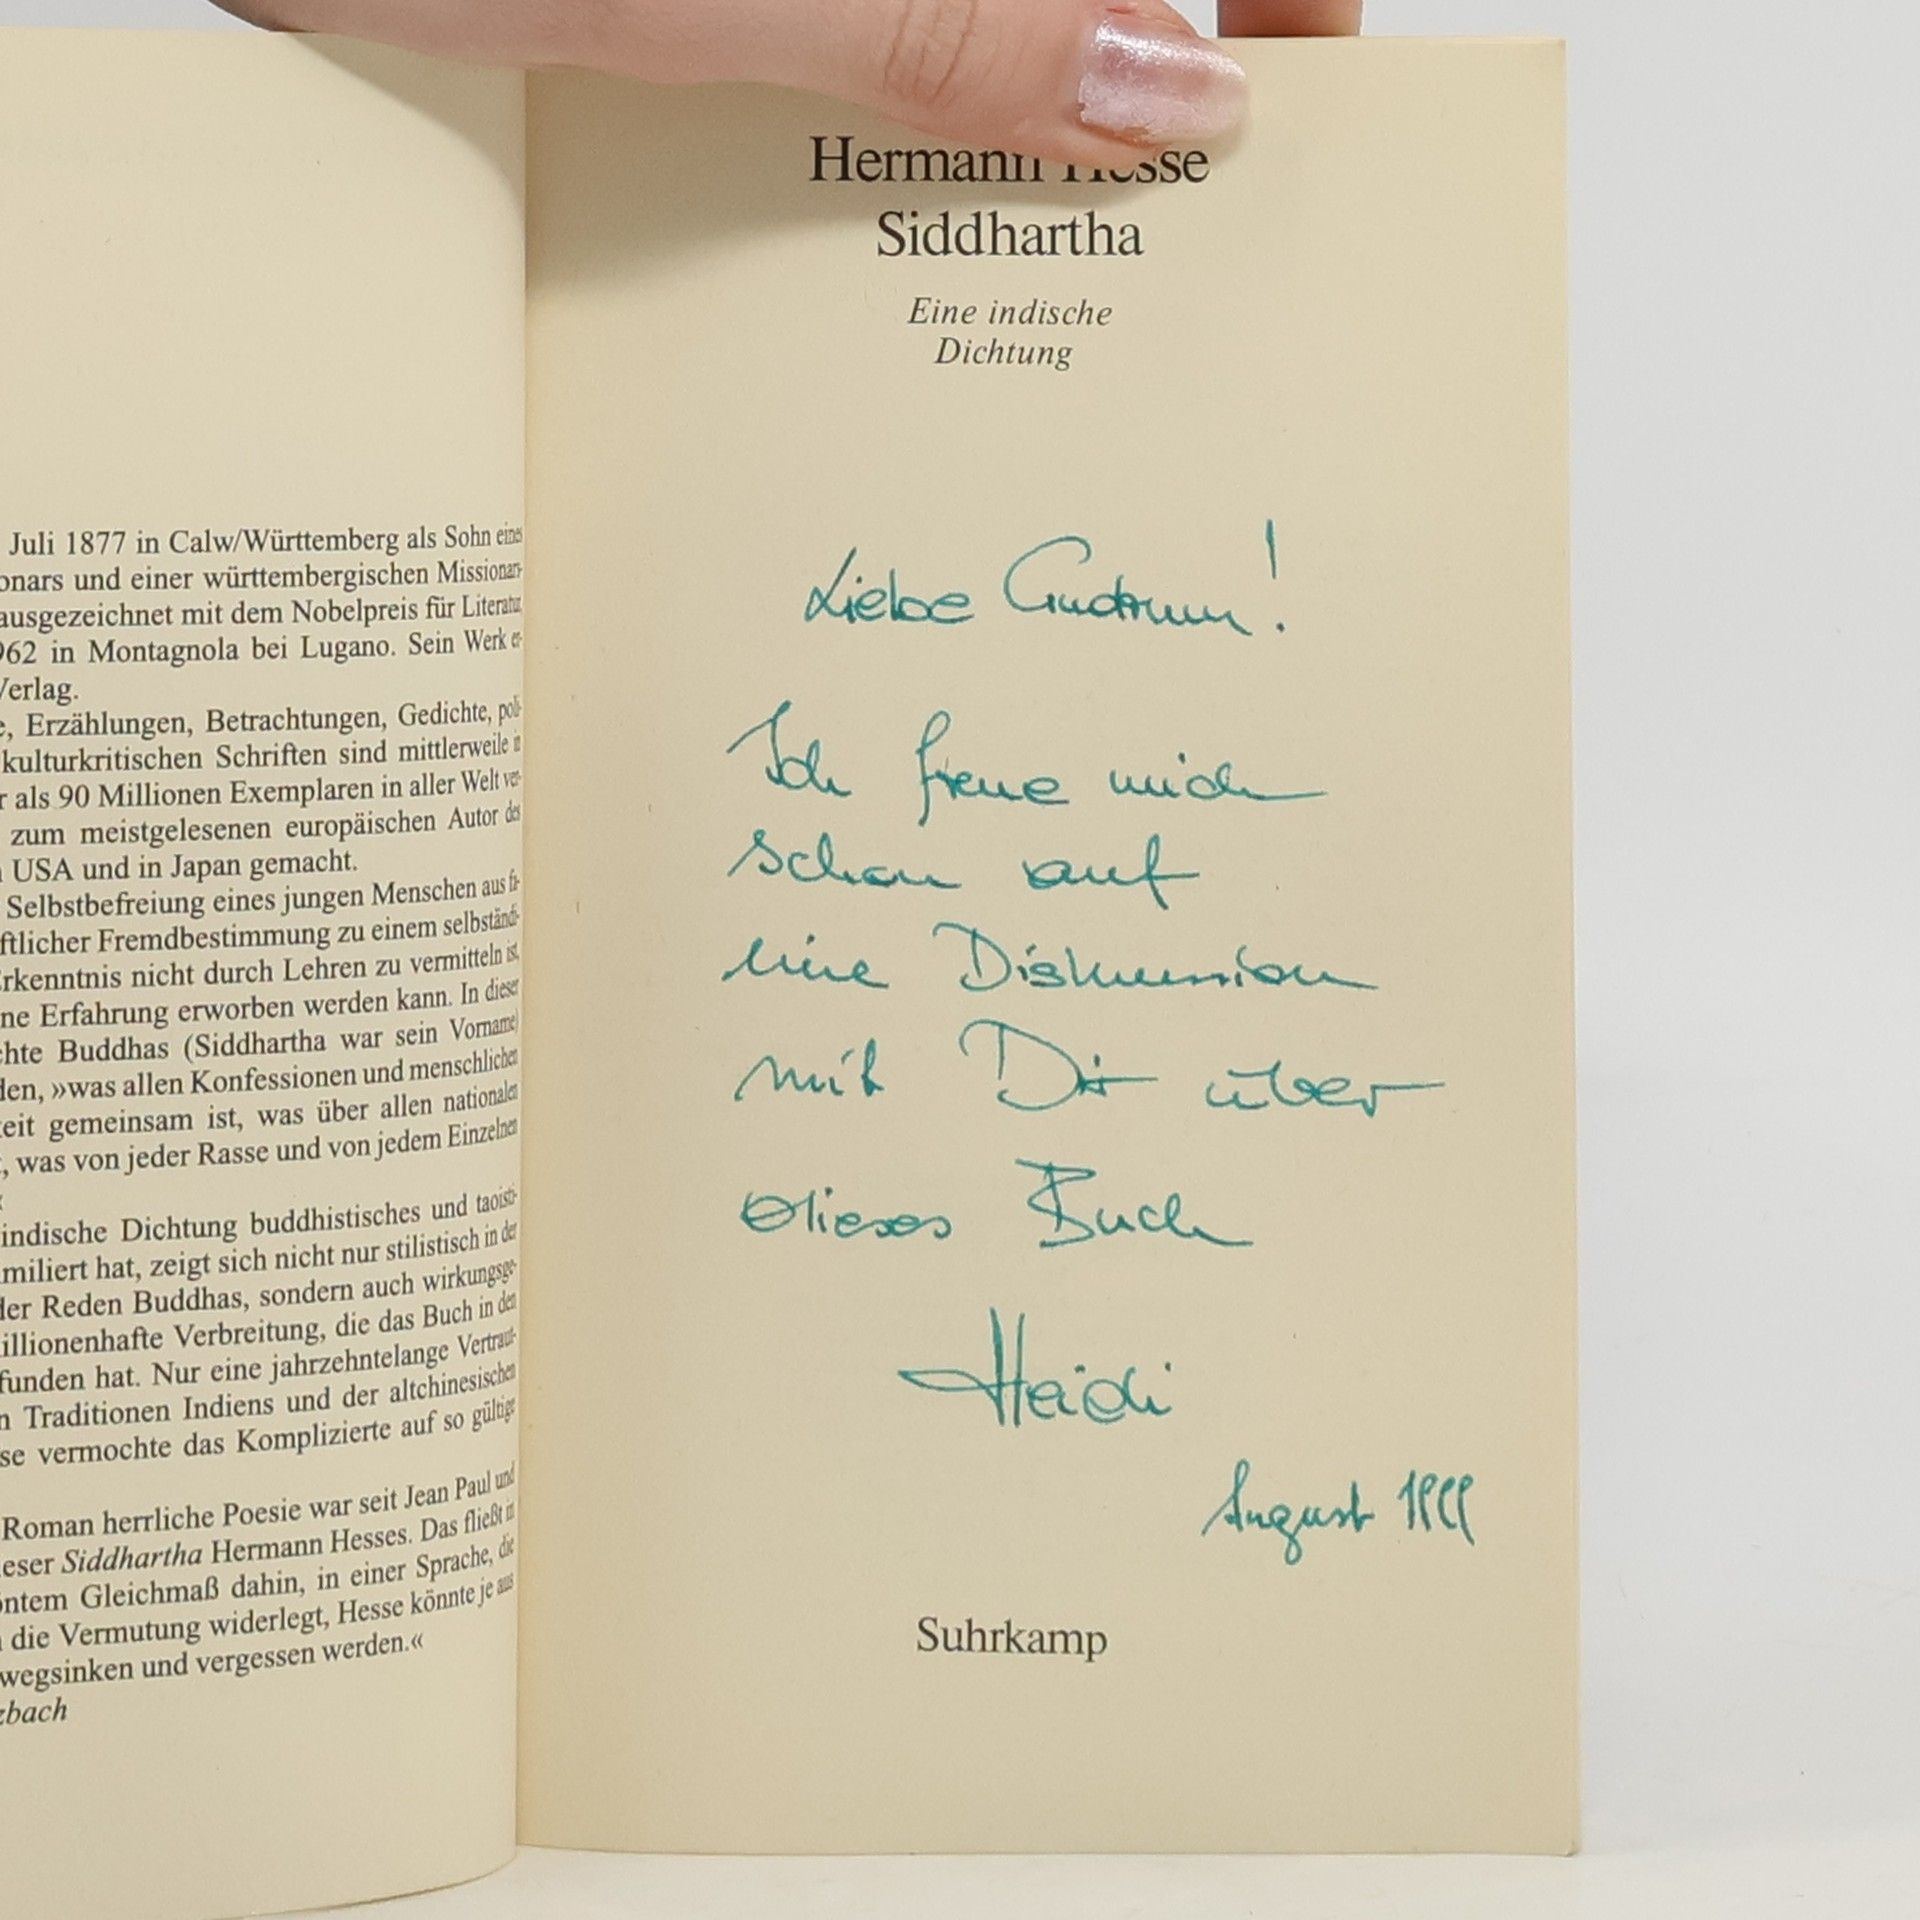 Juli 1877 in Calw/Württemberg als Sohn eines
onars und einer württembergischen Missionars-
ausgezeichnet mit dem Nobelpreis für Literatur,
962 in Montagnola bei Lugano. Sein Werk er-
Verlag.
e, Erzählungen, Betrachtungen, Gedichte, poli-
kulturkritischen Schriften sind mittlerweile in
r als 90 Millionen Exemplaren in aller Welt ver-
zum meistgelesenen europäischen Autor des
n USA und in Japan gemacht.
Selbstbefreiung eines jungen Menschen aus fa-
ftlicher Fremdbestimmung zu einem selbständi-
Erkenntnis nicht durch Lehren zu vermitteln ist,
ne Erfahrung erworben werden kann. In dieser
chte Buddhas (Siddhartha war sein Vorname)
den, »was allen Konfessionen und menschlichen
keit gemeinsam ist, was über allen nationalen
, was von jeder Rasse und von jedem Einzelnen
«
indische Dichtung buddhistisches und taoisti-
miliert hat, zeigt sich nicht nur stilistisch in der
der Reden Buddhas, sondern auch wirkungsge-
illionenhafte Verbreitung, die das Buch in den
funden hat. Nur eine jahrzehntelange Vertraut-
n Traditionen Indiens und der altchinesischen
se vermochte das Komplizierte auf so gültige
Roman herrliche Poesie war seit Jean Paul und
ieser Siddhartha Hermann Hesses. Das fließt in
öntem Gleichmaß dahin, in einer Sprache, die
n die Vermutung widerlegt, Hesse könnte je aus
wegsinken und vergessen werden.«
zbach
Hermann Hesse
Siddhartha
Eine indische
Dichtung
Liebe Gudrun!
Ich freue mich
schon auf
eine Diskussion
mit Dir über
dieses Buch
Heidi
August 1999
Suhrkamp